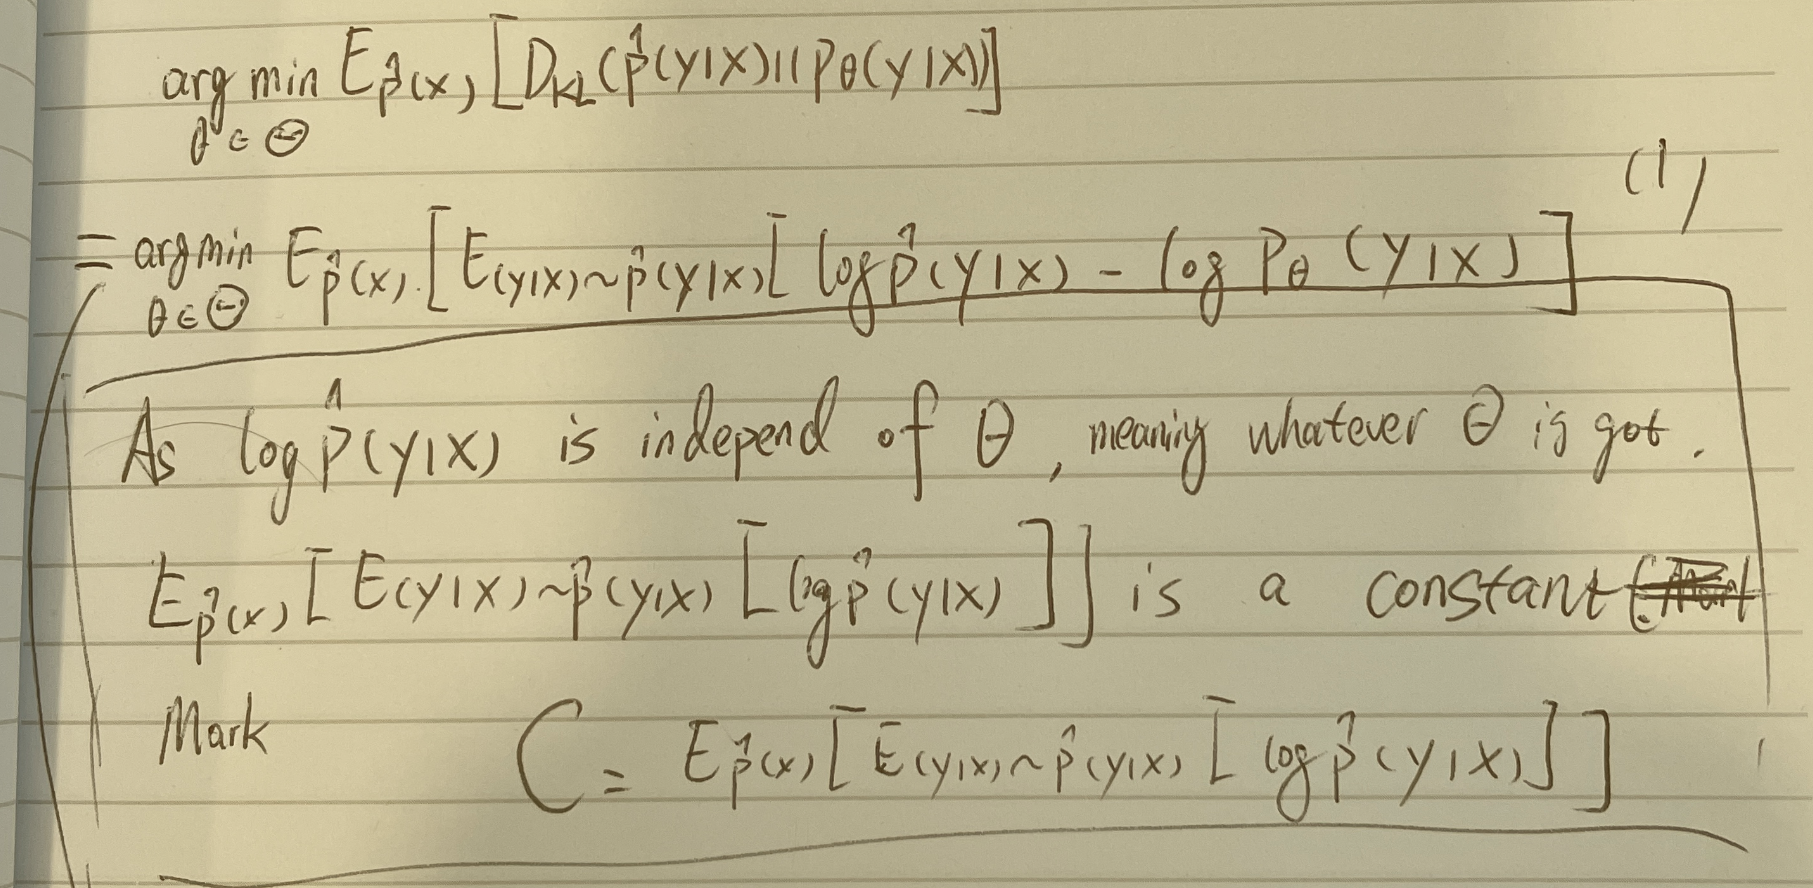 arg min E_{p̂(x)} [D_{KL}(p̂(y|x)||p_θ(y|x))]
θ∈Θ
(1)
= argmin E_{p̂(x)}. [E_{(y|x)~p̂(y|x)}[ log p̂(y|x) - log p_θ (y|x) ]
θ∈Θ
As log p̂(y|x) is independ of θ, meaning whatever θ is got.
E_{p̂(x)} [E_{(y|x)~p̂(y|x)} [log p̂(y|x)]] is a constant
Mark C = E_{p̂(x)} [E_{(y|x)~p̂(y|x)} [ log p̂(y|x)]]